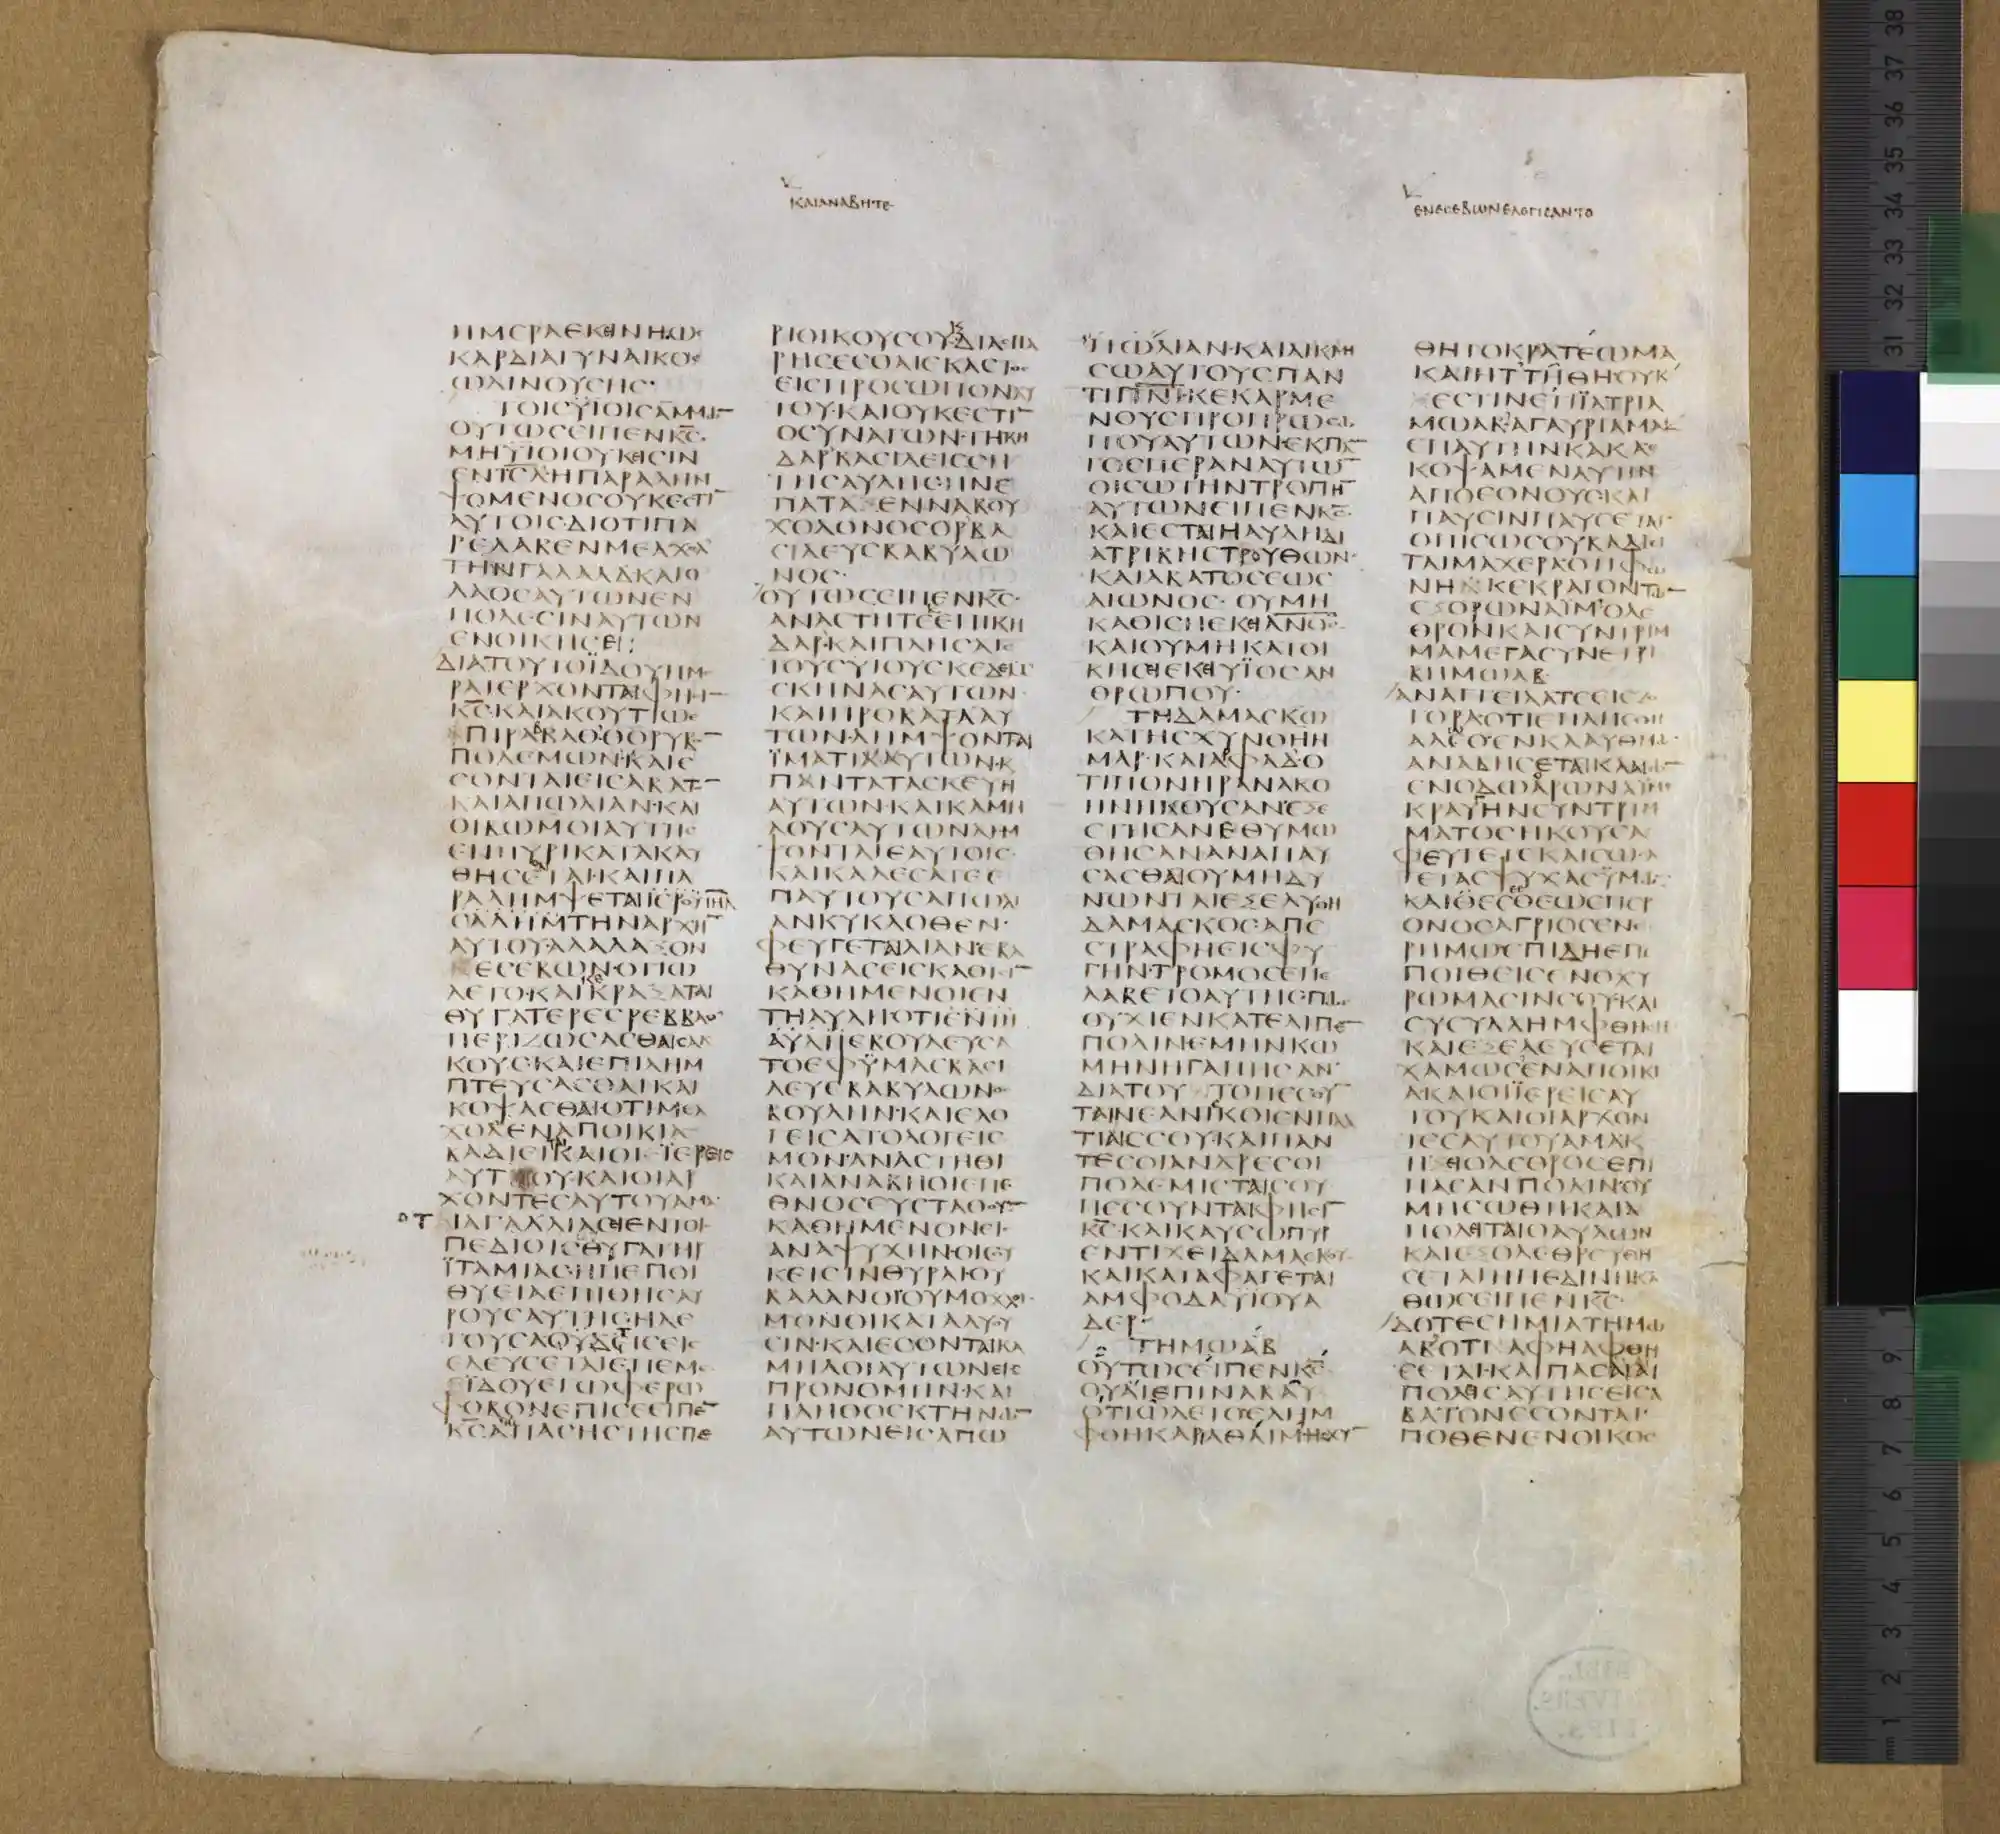 ΚΑΙΑΝΑΒΗΤΕ
ΕΝΕΣΕΒΩΝΕΛΟΓΙΣΑΝΤΟ
ΗΜΕΡΑΕΚΕΙΝΗΩϹ
ΚΑΡΔΙΑΓΥΝΑΙΚΟϹ
ΩΔΙΝΟΥϹΗϹ·
ΤΟΙϹΥΪΟΙϹΑΜΜΩ̅
ΟΥΤΩϹΕΙΠΕΝΚ̅Ϲ̅·
ΜΗΥΪΟΙΟΥΚΕΙϹΙΝ
ΕΝΙ̅Ϲ̅Λ̅ΗΠΑΡΑΛΗΜ
ΨΟΜΕΝΟϹΟΥΚΕϹΤΙ̅
ΑΥΤΟΙϹ·ΔΙΟΤΙΠΑ
ΡΕΛΑΒΕΝΜΕΛΧΟΛ
ΤΗΝΓΑΛΑΑΔΚΑΙΟ
ΛΑΟϹΑΥΤΩΝΕΝ
ΠΟΛΕϹΙΝΑΥΤΩΝ
ΕΝΟΙΚΗϹΕΙ:
ΔΙΑΤΟΥΤΟΪΔΟΥΗΜΕ
ΡΑΙΕΡΧΟΝΤΑΙΦΗϹΙ̅
Κ̅Ϲ̅·ΚΑΙΑΚΟΥΤΙΩ
ΕΠΙΡΑΒΒΑΘΘΟΡΥΒΟ̅
ΠΟΛΕΜΩΝ·ΚΑΙΕ
ϹΟΝΤΑΙΕΙϹΑΒΑΤΟ̅
ΚΑΙΑΠΩΛΙΑΝ·ΚΑΙ
ΟΙΒΩΜΟΙΑΥΤΗϹ
ΕΝΠΥΡΙΚΑΤΑΚΑΥ
ΘΗϹΕΤΑΙ·ΚΑΙΠΑ
ΡΑΛΗΜΨΕΤΑΙΪϹΡΟΥΪΗΛ
ΑΥΤΟΥ·ΑΛΑΛΑΞΟΝ
ΕϹΕΒΩΝ·ΟΤΙΩ
ΛΕΤΟ·ΚΑΙΚΕΚΡΑΞΑΤΑΙ
ΘΥΓΑΤΕΡΕϹΡΕΒΒΑΘ
ΠΕΡΙΖΩϹΑϹΘΑΙϹΑΚ
ΚΟΥϹ·ΚΑΙΕΠΙΛΗΜ
ΠΤΕΥϹΑϹΘΑΙΚΑΙ
ΚΟΨΑϹΘΑΙΟΤΙΜΕΛ
ΧΟΛΕΝΑΠΟΙΚΙΑ
ΒΑΔΙΕΙΤΑΙΚΑΙΟΙΪΕΡΕΙϹ
ΑΥΤΟΥ·ΚΑΙΟΙΑΡ
ΧΟΝΤΕϹΑΥΤΟΥΑΜΑ
ΟΤ
ΠΕΔΙΟΙϹΘΥΓΑΤΗΡ
ΪΤΑΜΙΑϹ·ΗΠΕΠΟΙ
ΘΥΕΙΑΕΠΙΘΗϹΑΥ
ΡΟΥϹΑΥΤΗϹ·ΗΛΕ
ΓΟΥϹΑ
ΕΛΕΥϹΕΤΑΙΕΠΕΜΕ
ΪΔΟΥΕΓΩΦΕΡΩ
ΦΟΒΟΝΕΠΙϹΕΕΙΠΕ̅
Κ̅Ϲ̅ΑΠΟΠΑϹΗϹΤΗϹΠΕ
ΡΙΟΙΚΟΥϹΟΥΚ̅ΔΙΑϹΠΑ
ΡΗϹΕϹΘΑΙΕΚΑϹΤΟϹ
ΕΙϹΠΡΟϹΩΠΟΝΑΥ
ΤΟΥ·ΚΑΙΟΥΚΕϹΤΙ̅
ΟϹΥΝΑΓΩΝ·ΤΗΚΗ
ΔΑΡΒΑϹΙΛΕΙϹϹΗ
ΤΗϹΑΥΛΗϹ·ΗΝΕ
ΠΑΤΑΞΕΝΝΑΒΟΥ
ΧΟΔΟΝΟϹΟΡΒΑ
ϹΙΛΕΥϹΒΑΒΥΛΩ
ΝΟϹ·
ΟΥΤΩϹΕΙΠΕΝΚ̅Ϲ̅·
ΑΝΑϹΤΗΤΕΕΠΙΚΗ
ΔΑΡ·ΚΑΙΠΛΗϹΑΤΕ
ΤΟΥϹΥΙΟΥϹΚΕΔΕΜ
ϹΚΗΝΑϹΑΥΤΩΝ
ΚΑΙΠΡΟΒΑΤΑΑΥ
ΤΩΝ·ΛΗΜΨΟΝΤΑΙ
ΪΜΑΤΙΑΑΥΤΩΝ·Κ
ΠΑΝΤΑΤΑϹΚΕΥΗ
ΑΥΤΩΝ·ΚΑΙΚΑΜΗ
ΛΟΥϹΑΥΤΩΝΛΗΜ
ΨΟΝΤΑΙΕΑΥΤΟΙϹ
ΚΑΙΚΑΛΕϹΑΤΕΕ
ΠΑΥΤΟΥϹΑΠΩΛΙ
ΑΝΚΥΚΛΟΘΕΝ·
ΦΕΥΓΕΤΑΙΛΙΑΝ·ΕΒΑ
ΘΥΝΑϹΕΙϹΚΑΘΙϹΙ̅
ΚΑΘΗΜΕΝΟΙΕΝ
ΤΗΑΥΛΗ·ΟΤΙΕΝ
ΑΥΛΗΕΒΟΥΛΕΥϹΑ
ΤΟΕΦΥΜΑϹΒΑϹΙ
ΛΕΥϹΒΑΒΥΛΩΝΟϹ
ΒΟΥΛΗΝ·ΚΑΙΕΛΟ
ΓΕΙϹΑΤΟΛΟΓΕΙϹ
ΜΟΝ·ΑΝΑϹΤΗΘΙ
ΚΑΙΑΝΑΒΗΘΙΕΠΕ
ΘΝΟϹΕΥϹΤΑΘΟΥ̅
ΚΑΘΗΜΕΝΟΝΕΙϹ
ΑΝΑΨΥΧΗΝ·ΟΙϹΟΥ
ΚΕΙϹΙΝΘΥΡΑΙΟΥ
ΒΑΛΑΝΟΙΟΥΜΟΧΛΟΙ
ΜΟΝΟΙΚΑΤΑΛΥΟΥ
ϹΙΝ·ΚΑΙΕϹΟΝΤΑΙΚΑ
ΜΗΛΟΙΑΥΤΩΝΕΙϹ
ΠΡΟΝΟΜΗΝ·ΚΑΙ
ΠΛΗΘΟϹΚΤΗΝΩ̅
ΑΥΤΩΝΕΙϹΑΠΩ
ΚΑΙΛΙΚΜΗ
ϹΩΑΥΤΟΥϹΠΑΝ
ΤΙΠ̅Ν̅Ι̅·ΚΕΚΑΡΜΕ
ΝΟΥϹΠΡΟΠΡΟϹΩ
ΠΟΥΑΥΤΩΝ·ΕΚΠΑ̅
ΤΟϹΠΕΡΑΝΑΥΤΩ̅
ΟΙϹΩΤΗΝΤΡΟΠΗ̅
ΑΥΤΩΝΕΙΠΕΝΚ̅Ϲ̅·
ΚΑΙΕϹΤΑΙΗΑΥΛΗΔΙ
ΑΤΡΙΒΗϹΤΡΟΥΘΩΝ·
ΚΑΙΑΒΑΤΟϹΕΩϹ
ΑΙΩΝΟϹ·ΟΥΜΗ
ΚΑΘΙϹΗΕΚΕΙΑ̅Ν̅Ο̅Ϲ̅·
ΚΑΙΟΥΜΗΚΑΤΟΙ
ΚΗϹΗΕΚΕΙΥΪΟϹΑΝ
ΘΡΩΠΟΥ·
ΤΗΔΑΜΑϹΚΩ
ΚΑΤΗϹΧΥΝΘΗΗ
ΜΑΡ·ΚΑΙΑΦΑΔ·Ο
ΤΙΠΟΝΗΡΑΝΑΚΟ
ΗΝΗΚΟΥϹΑΝ·ΕΞΕ
ϹΤΗϹΑΝΕΘΥΜΩ
ΘΗϹΑΝΑΝΑΠΑΥ
ϹΑϹΘΑΙΟΥΜΗΔΥ
ΝΩΝΤΑΙΕΞΕΛΥΘΗ
ΔΑΜΑϹΚΟϹ·ΑΠΕ
ϹΤΡΑΦΗΕΙϹΦΥ
ΓΗΝ·ΤΡΟΜΟϹΕΠΕ
ΛΑΒΕΤΟΑΥΤΗϹ·ΠΩϹ
ΟΥΧΙΕΝΚΑΤΕΛΙΠΕ̅
ΠΟΛΙΝΕΜΗΝΚΩ
ΜΗΝΗΓΑΠΗϹΑΝ·
ΔΙΑΤΟΥΤΟΠΕϹΟΥ̅
ΤΑΙΝΕΑΝΙϹΚΟΙΕΝΠΛΑ
ΤΙΑΙϹϹΟΥ·ΚΑΙΠΑΝ
ΤΕϹΟΙΑΝΔΡΕϹΟΙ
ΠΟΛΕΜΙϹΤΑΙϹΟΥ
ΠΕϹΟΥΝΤΑΙΦΗϹΙ̅
Κ̅Ϲ̅·ΚΑΙΚΑΥϹΩΠΥΡ
ΕΝΤΙΧΕΙΔΑΜΑϹΚΟΥ
ΚΑΙΚΑΤΑΦΑΓΕΤΑΙ
ΑΜΦΟΔΑΥΙΟΥΑ
ΔΕΡ·
ΤΗΜΩΑΒ
ΟΥΤΩϹΕΙΠΕΝΚ̅Ϲ̅
ΟΥΑΙΕΠΙΝΑΒΑΥ
ΟΤΙΩΛΕΤΟΕΛΗΜ
ΦΘΗΚΑΡΑΘΑΙΜΗϹΧΥ̅
ΘΗΤΟΚΡΑΤΕΩΜΑ
ΚΑΙΗΤΤΗΘΗΟΥΚ
ΕϹΤΙΝΕΤΙΪΑΤΡΙΑ
ΜΩΑΒ·ΑΓΑΥΡΙΑΜΑ
ΕΠΑΥΤΗΝΚΑΚΑ
ΚΟΨΑΜΕΝΑΥΤΗΝ
ΑΠΟΕΘΝΟΥϹ·ΚΑΙ
ΠΑΥϹΙΝΠΑΥϹΕΤΑΙ·
ΟΠΙϹΩϹΟΥΒΑΔΙΕΙ
ΤΑΙΜΑΧΕΡΑ·ΟΤΙΦΩ
ΝΗΚΕΚΡΑΓΟΝΤΩ̅
ΕΞΟΡΩΝΑΪΜ·ΟΛΕ
ΘΡΟΝΚΑΙϹΥΝΤΡΙΜ
ΜΑΜΕΓΑϹΥΝΕΤΡΙ
ΒΗΜΩΑΒ·
ΑΝΑΓΓΕΙΛΑΤΕΕΙϹΖΟ
ΓΟΡΑ·ΟΤΙΕΠΛΗϹΘΗ
ΑΛΑΩΘΕΝΚΛΑΥΘΜΩ·
ΑΝΑΒΗϹΕΤΑΙΚΛΑΙΩ̅
ΕΝΟΔΩΑΡΩΝΑΪΜ
ΚΡΑΥΓΗΝϹΥΝΤΡΙΜ
ΜΑΤΟϹΗΚΟΥϹΑ
ΦΕΥΓΕΤΕΚΑΙϹΩϹΑ
ΤΕΤΑϹΨΥΧΑϹΥΜΩ
ΚΑΙΕϹΕϹΘΕΩϹΠΕΡ
ΟΝΟϹΑΓΡΙΟϹΕΝΕ
ΡΗΜΩΕΠΙΔΗΕΠΕ
ΠΟΙΘΕΙϹΕΝΟΧΥ
ΡΩΜΑϹΙΝϹΟΥ·ΚΑΙ
ϹΥϹΥΛΛΗΜΦΘΗϹΗ
ΚΑΙΕΞΕΛΕΥϹΕΤΑΙ
ΧΑΜΩϹΕΝΑΠΟΙΚΙ
Α·ΚΑΙΟΙΪΕΡΕΙϹΑΥ
ΤΟΥΚΑΙΟΙΑΡΧΟΝ
ΤΕϹΑΥΤΟΥΑΜΑΚ
ΗΞΕΙΟΛΕΘΡΟϹΕΠΙ
ΠΑϹΑΝΠΟΛΙΝ·ΟΥ
ΜΗϹΩΘΗΚΑΙΑ
ΠΟΛΕΙΤΑΙΟΑΥΛΩΝ
ΚΑΙΕΞΟΛΕΘΡΕΥΘΗ
ϹΕΤΑΙΗΠΕΔΙΝΗΚΑ
ΘΩϹΕΙΠΕΝΚ̅Ϲ̅·
ΔΟΤΕϹΗΜΙΑΤΗΜΩ
ΑΒΟΤΙΑΦΗΑΦΘΗ
ϹΕΤΑΙ·ΚΑΙΠΑϹΑΙΑΙ
ΠΟΛΕΙϹΑΥΤΗϹΕΙϹΑ
ΒΑΤΟΝΕϹΟΝΤΑΙ·
ΠΟΘΕΝΕΝΟΙΚΟϹ